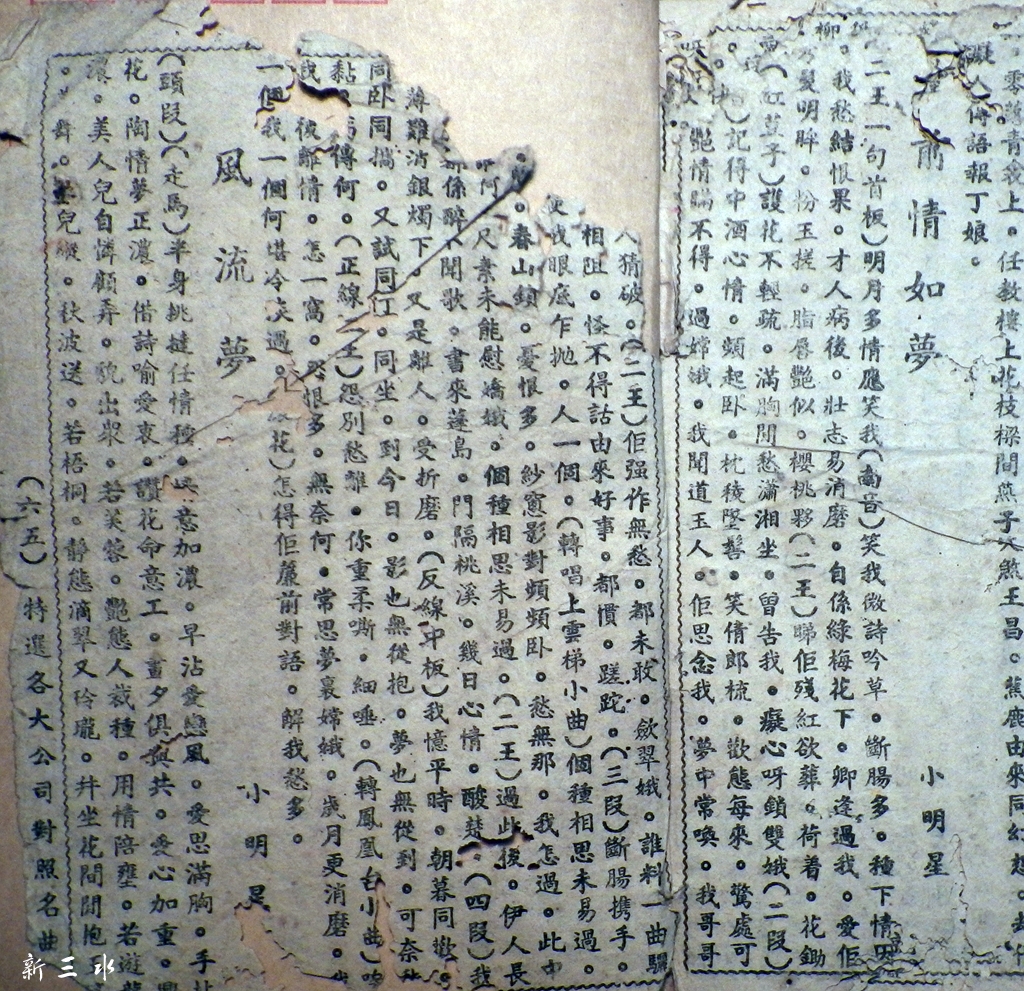 零薄青衫上。任教樓上花枝樑間燕子
傳語報丁娘。
前情如夢
小明星
(二王一句首板)明月多情應笑我(禽音)笑我微詩吟草。斷腸多。種下情
。我愁結恨果。才人病後。壯志易消磨。自係綠梅花下。卿逢過我。愛佢
髮明眸。粉玉搓。脂唇艷似。櫻桃夥(二王)睇佢殘紅欲葬。荷着。花鋤
(紅荳子)護花不輕疏。滿胸閒愁瀟湘坐。曾告我。癡心呀鎖雙娥(二段)
。記得中酒心情。頻起卧。枕稜墜髻。笑倩郎梳。歡態每來。驚處可
艷情瞞不得。過嫦娥。我聞道玉人。佢思念我。夢中常喚。我哥哥
猜破。(二王)佢强作無愁。都未敢。歛翠娥。誰料一曲驪
相阻。怪不得話由來好事。都慣。蹉跎。(三段)斷腸携手。
眼底乍抛。人一個。(轉唱上雲梯小曲)個種相思未易過。
。春山鎖。憂恨多。紗窻影對頻頻卧。愁無那。我怎過。此中
尺素未能慰嬌娥。個種相思未易過。(二王)過此後。伊人長
係醉人聞歌。書來蓬島。門隔桃溪。幾日心情。酸楚。(四段)我
薄難消銀燭下。又是離人。受折磨。(反線中板)我憶平時。朝暮同歡
同卧同揣。又試同行。同坐。到今日。影也無從抱。夢也無從到。可奈
傳何。(正線二王)怨別愁離。你重柔嘶。細唾。(轉鳳凰台小曲)
離情。怎一窩。恨多。無奈何。常思夢裏嫦娥。歲月更消磨。
一個我一個何堪冷淡過。花)怎得佢簾前對語。解我愁多。
風流夢
小明星
(頭段)(走馬)半身挑撻任情種。意加濃。早沾愛戀風。愛思滿胸。手
花。陶情夢正濃。借詩喻愛衷。讚花命意工。晝夕俱與共。愛心加重。
濃。美人兒自憐顧弄。貌出衆。若芙蓉。艷態人栽種。用情陪壅。若遊龍
。舞。兒縱。秋波送。若梧桐。靜態滴翠又伶瓏。幷坐花間閒抱
(六五)特選各大公司對照名曲
新三水